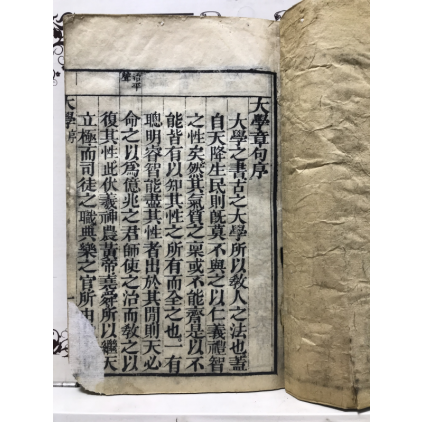 大學章句序
大學之書古之大學所以教人之法也蓋
自天降生民則既莫不與之以仁義禮智
之性矣然其氣質之稟或不能齊是以不
能皆有以知其性之所有而全之也一有
聰明睿智能盡其性者出於其閒則天必
命之以為億兆之君師使之治而教之以
復其性此伏羲神農黃帝堯舜所以繼天
立極而司徒之職典樂之官所由
治平
聲
大學序